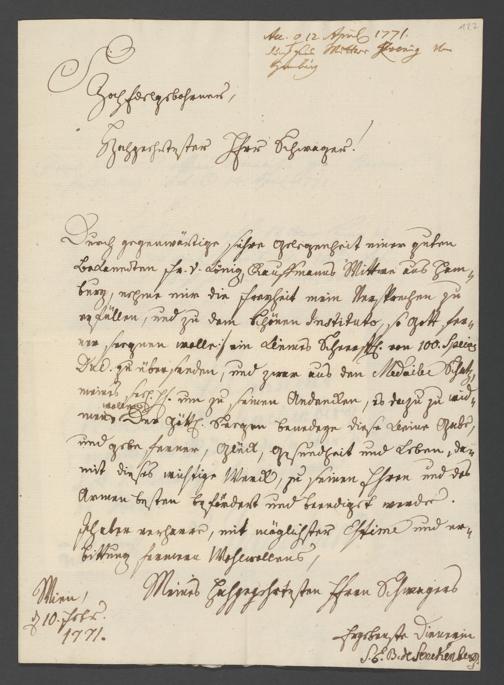 127
Acc. d 12 April 1771.
durch Mittwe König von
Hochedelgebohrner,
Hochgeehrtester Herr Schwager!
Durch gegenwärtige sichre Gelegenheit einer guten
Bekanndten Fr. v. König Kauffmanns Wittwe aus Ham-
burg, nehme mir die Freyheit mein Versprechen zu
erfüllen, und zu dem schönen Institute, so Gott fer-
ner seegnen wolle, ein kleines von 100. Species
Duc. zu übersenden, und zwar aus den Medaille Schatz
meines um zu seinen Andencken, es dazu zu wid-
men wollen. Der Göttl. Seegen benedeye diese kleine Gabe,
und gebe ferner, Glück, Gesundheit und Leben, da-
mit dieses wichtige Werck, zu seinen Ehren und der
Armen besten befördert und beendiget werde.
Ich aber verharre, mit möglichster Estime und er-
bittung fernern Wohlwollens,
Meines Hochgeehrtesten Herrn Schwagers
Wien,
d 10. Febr.
1771.
Ergebenste Dienerin
S. E. B. de Senckenberg.